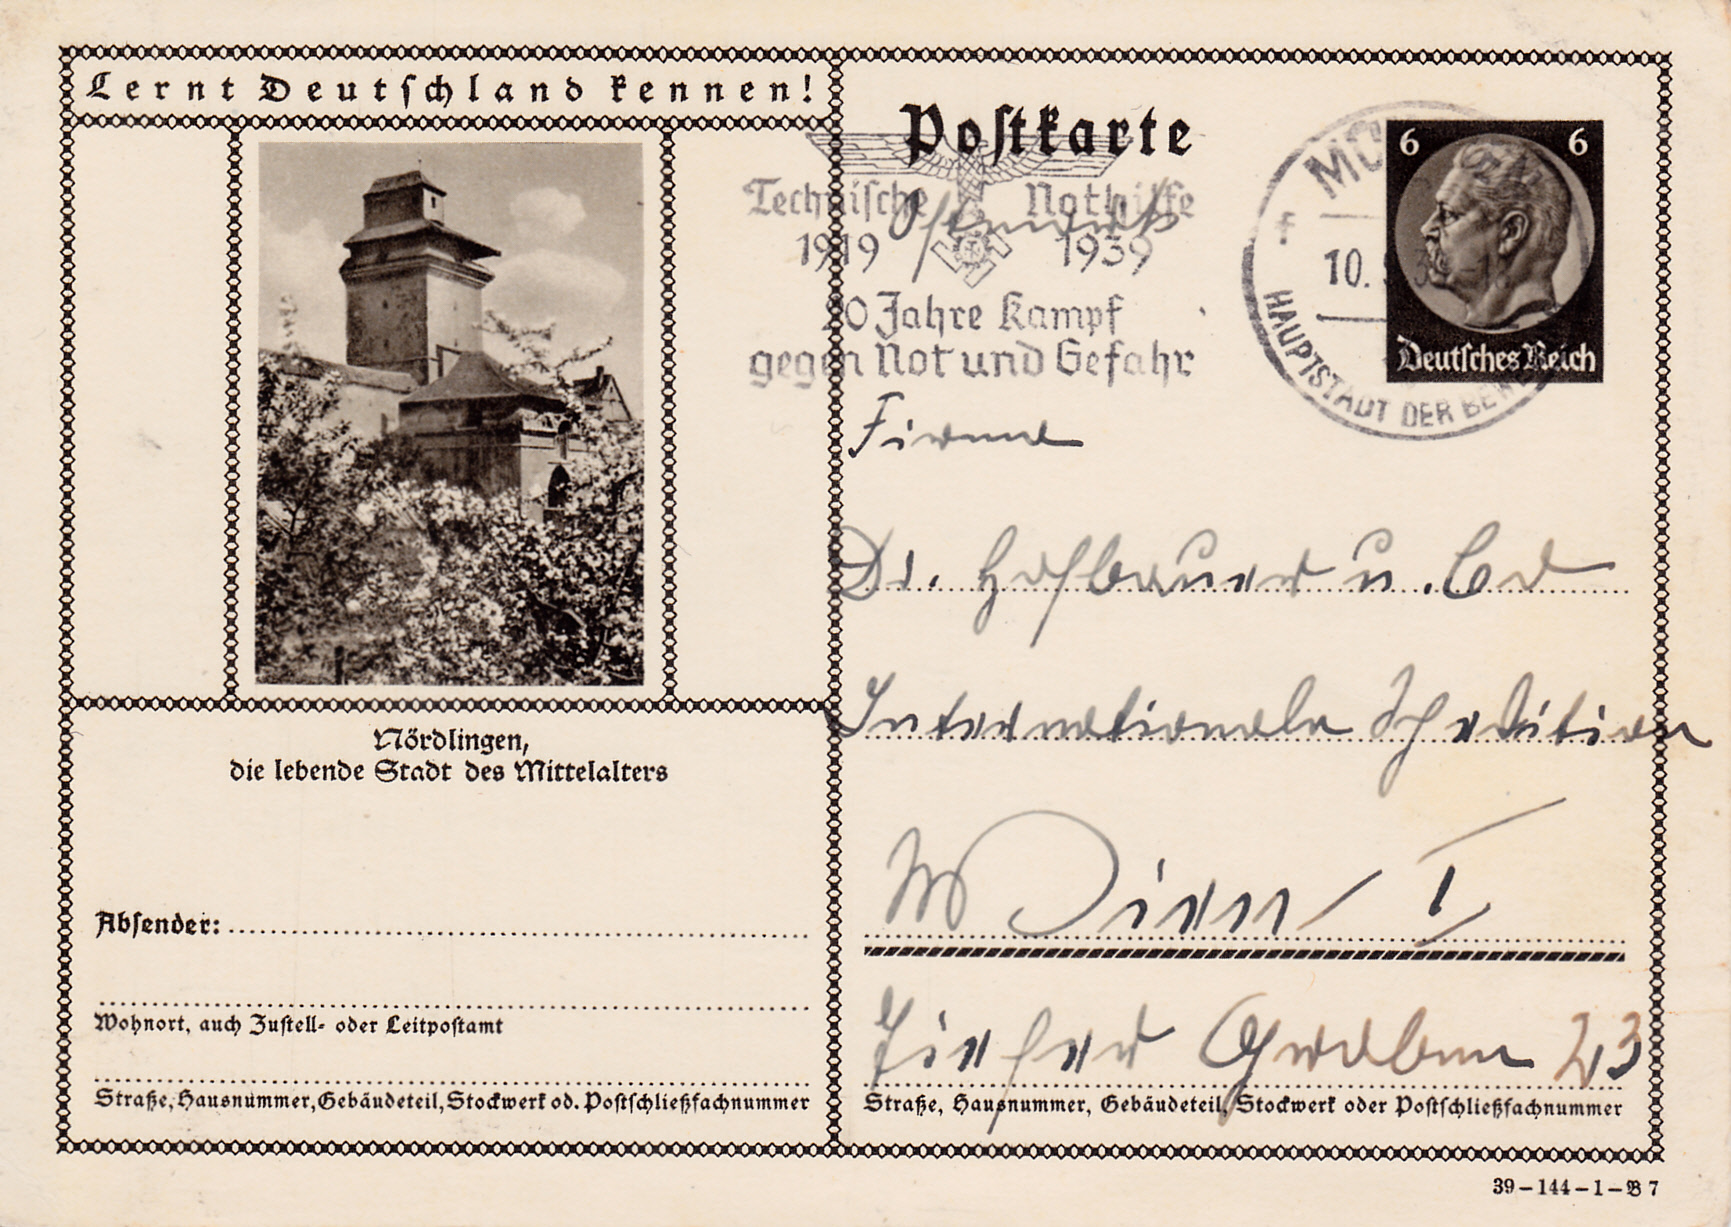 Lernt Deutschland kennen!
Postkarte
Technische Nothilfe
Ostmark
1919 1939
20 Jahre Kampf
gegen Not und Gefahr
MÜ
10.
HAUPTSTADT DER BEWE
6 6
Deutsches Reich
Nördlingen,
die lebende Stadt des Mittelalters
Firma
Dr. Hofbauer u. Co
Internationale Spedition
Wien / I
Tiefer Graben 23
Absender:
Wohnort, auch Zustell- oder Leitpostamt
Straße, Hausnummer, Gebäudeteil, Stockwerk od. Postschließfachnummer
Straße, Hausnummer, Gebäudeteil, Stockwerk oder Postschließfachnummer
39-144-1-B 7